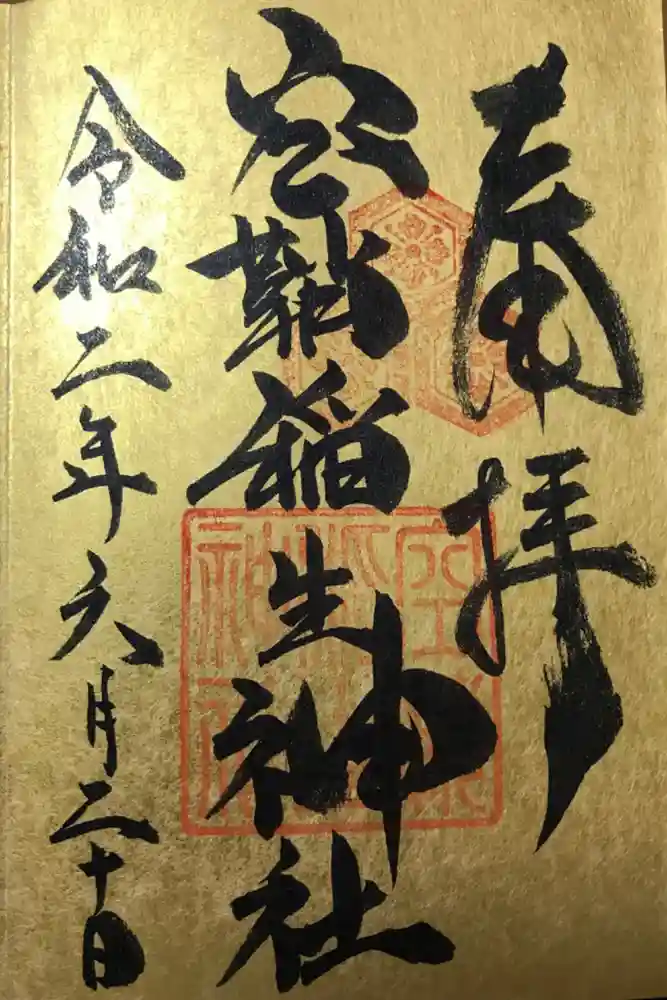 奉拝
空鞘稲生神社
令和二年六月二十日